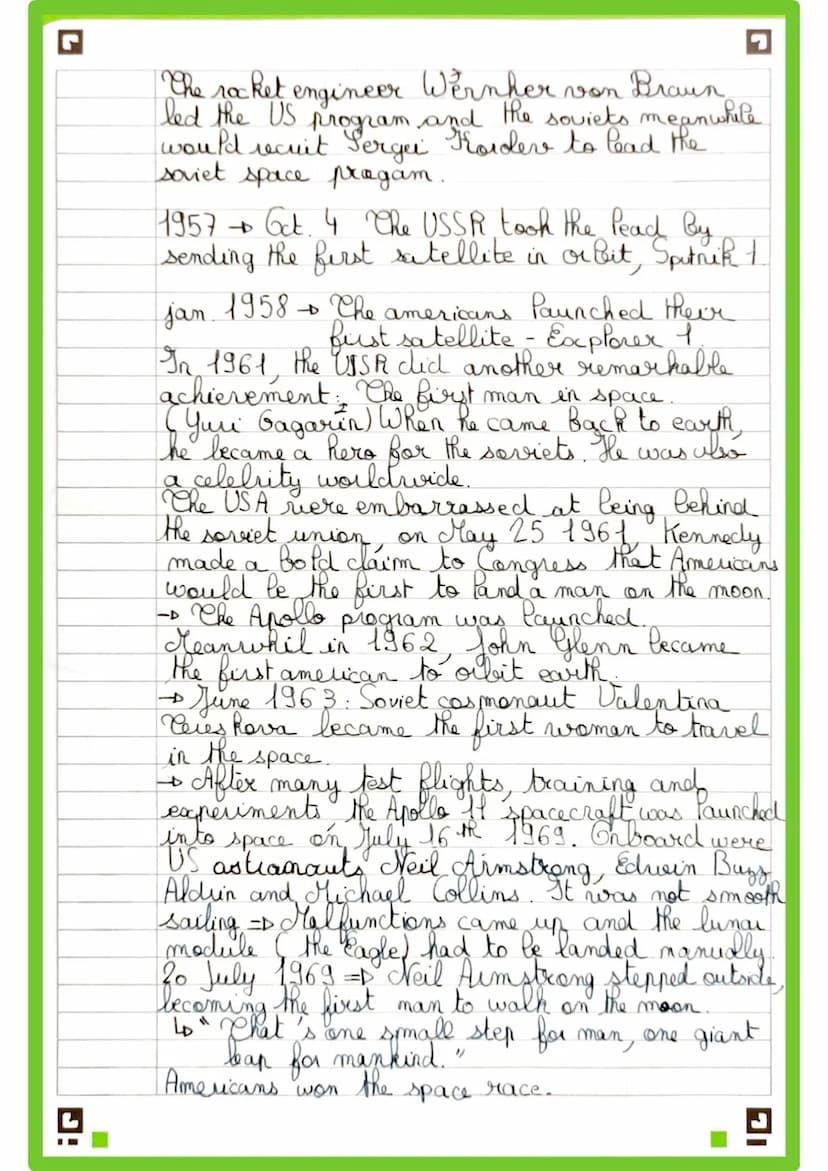 The rocket engineer Wernher von Braun
led the US program and the soviets meanwhile
would recuit Sergei Korolev to lead the
soviet space progam.
1957 → Oct. 4 The USSR took the lead by
sending the first satellite in orbit, Sputnik 1.
jan. 1958 → The americans launched their
first satellite - Explorer 1.
In 1961, the USSR did another remarkable
achievement: The first man in space.
(Yuri Gagarin) When he came back to earth,
he became a hero for the soviets. He was also
a celebrity worldwide.
The USA were embarrassed at being behind
the soviet union, on May 25 1961, Kennedy
made a bold claim to Congress that Americans
would be the first to land a man on the moon.
→ The Apollo program was launched.
Meanwhil in 1962, John Glenn became
the first american to orbit earth.
→ June 1963: Soviet cosmonaut Valentina
Tereshova became the first woman to travel
in the space.
→ After many test flights, training and
experiments, the Apollo 11 spacecraft was launched
into space on July 16th 1969. On board were
US astronauts Neil Armstrong, Edwin Buzz
Aldrin and Michael Collins. It was not smooth
sailing ⇒ Malfunctions came up and the lunar
module (the Eagle) had to be landed manually.
20 July 1969 ⇒ Neil Armstrong stepped outside,
becoming the first man to walk on the moon.
↳ "That's one small step for man, one giant
leap for mankind."
Americans won the space race.